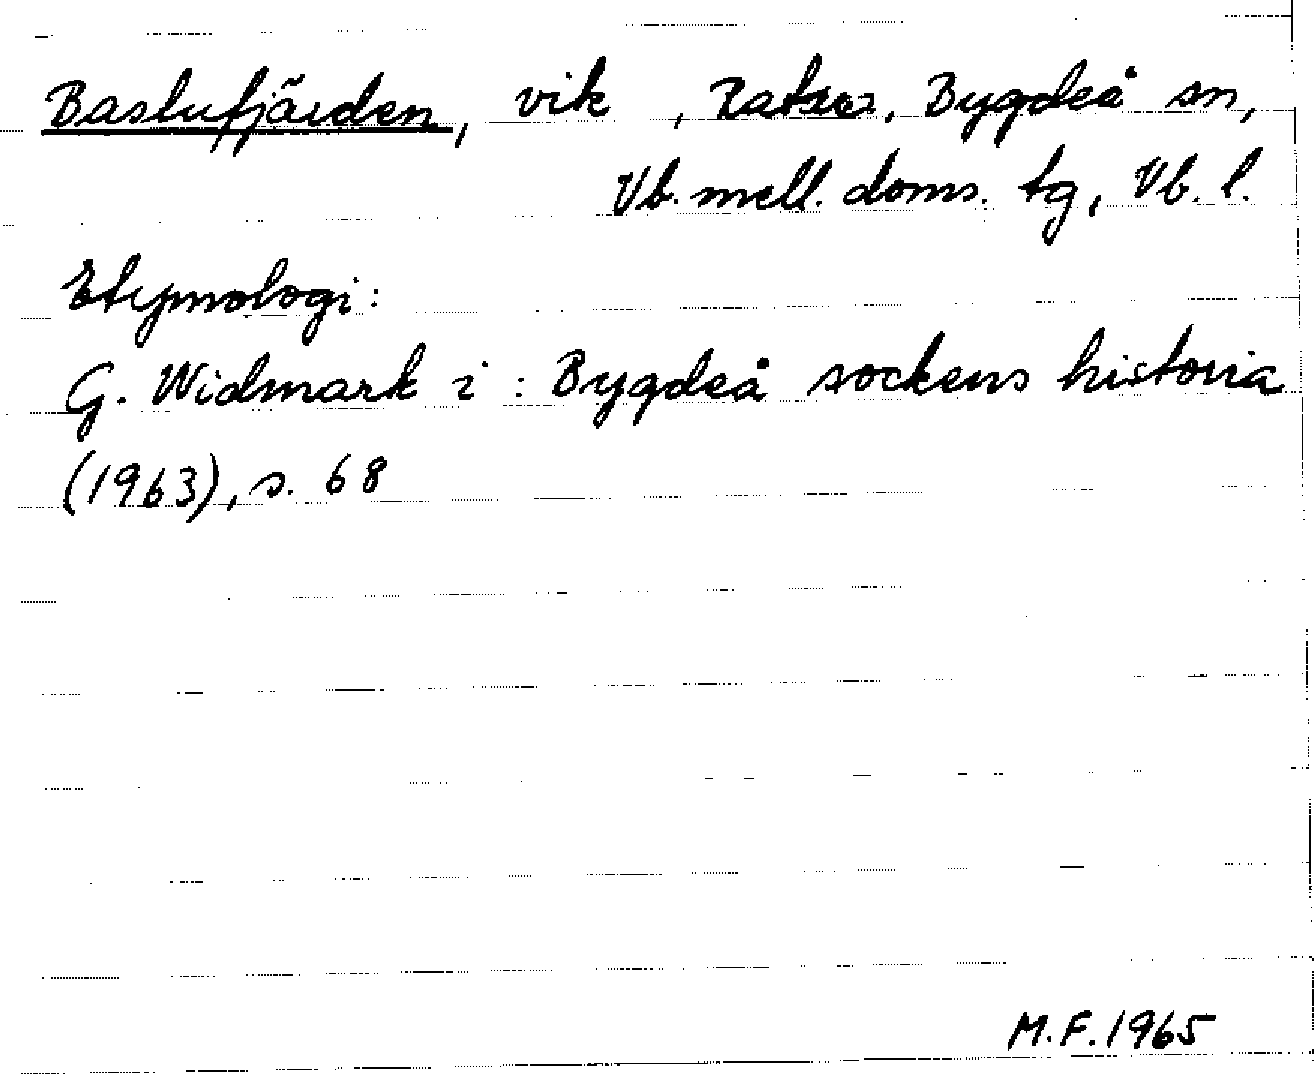 Baslufjärden, vik , Ratan, Bygdeå sn,
Vb. mell. doms. tg, Vb. l.
Etymologi:
G. Widmark i : Bygdeå sockens historia
(1963), s. 68
M.F. 1965